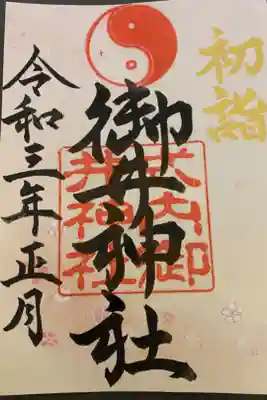 初詣
御井神社
式内御井神社
令和三年正月